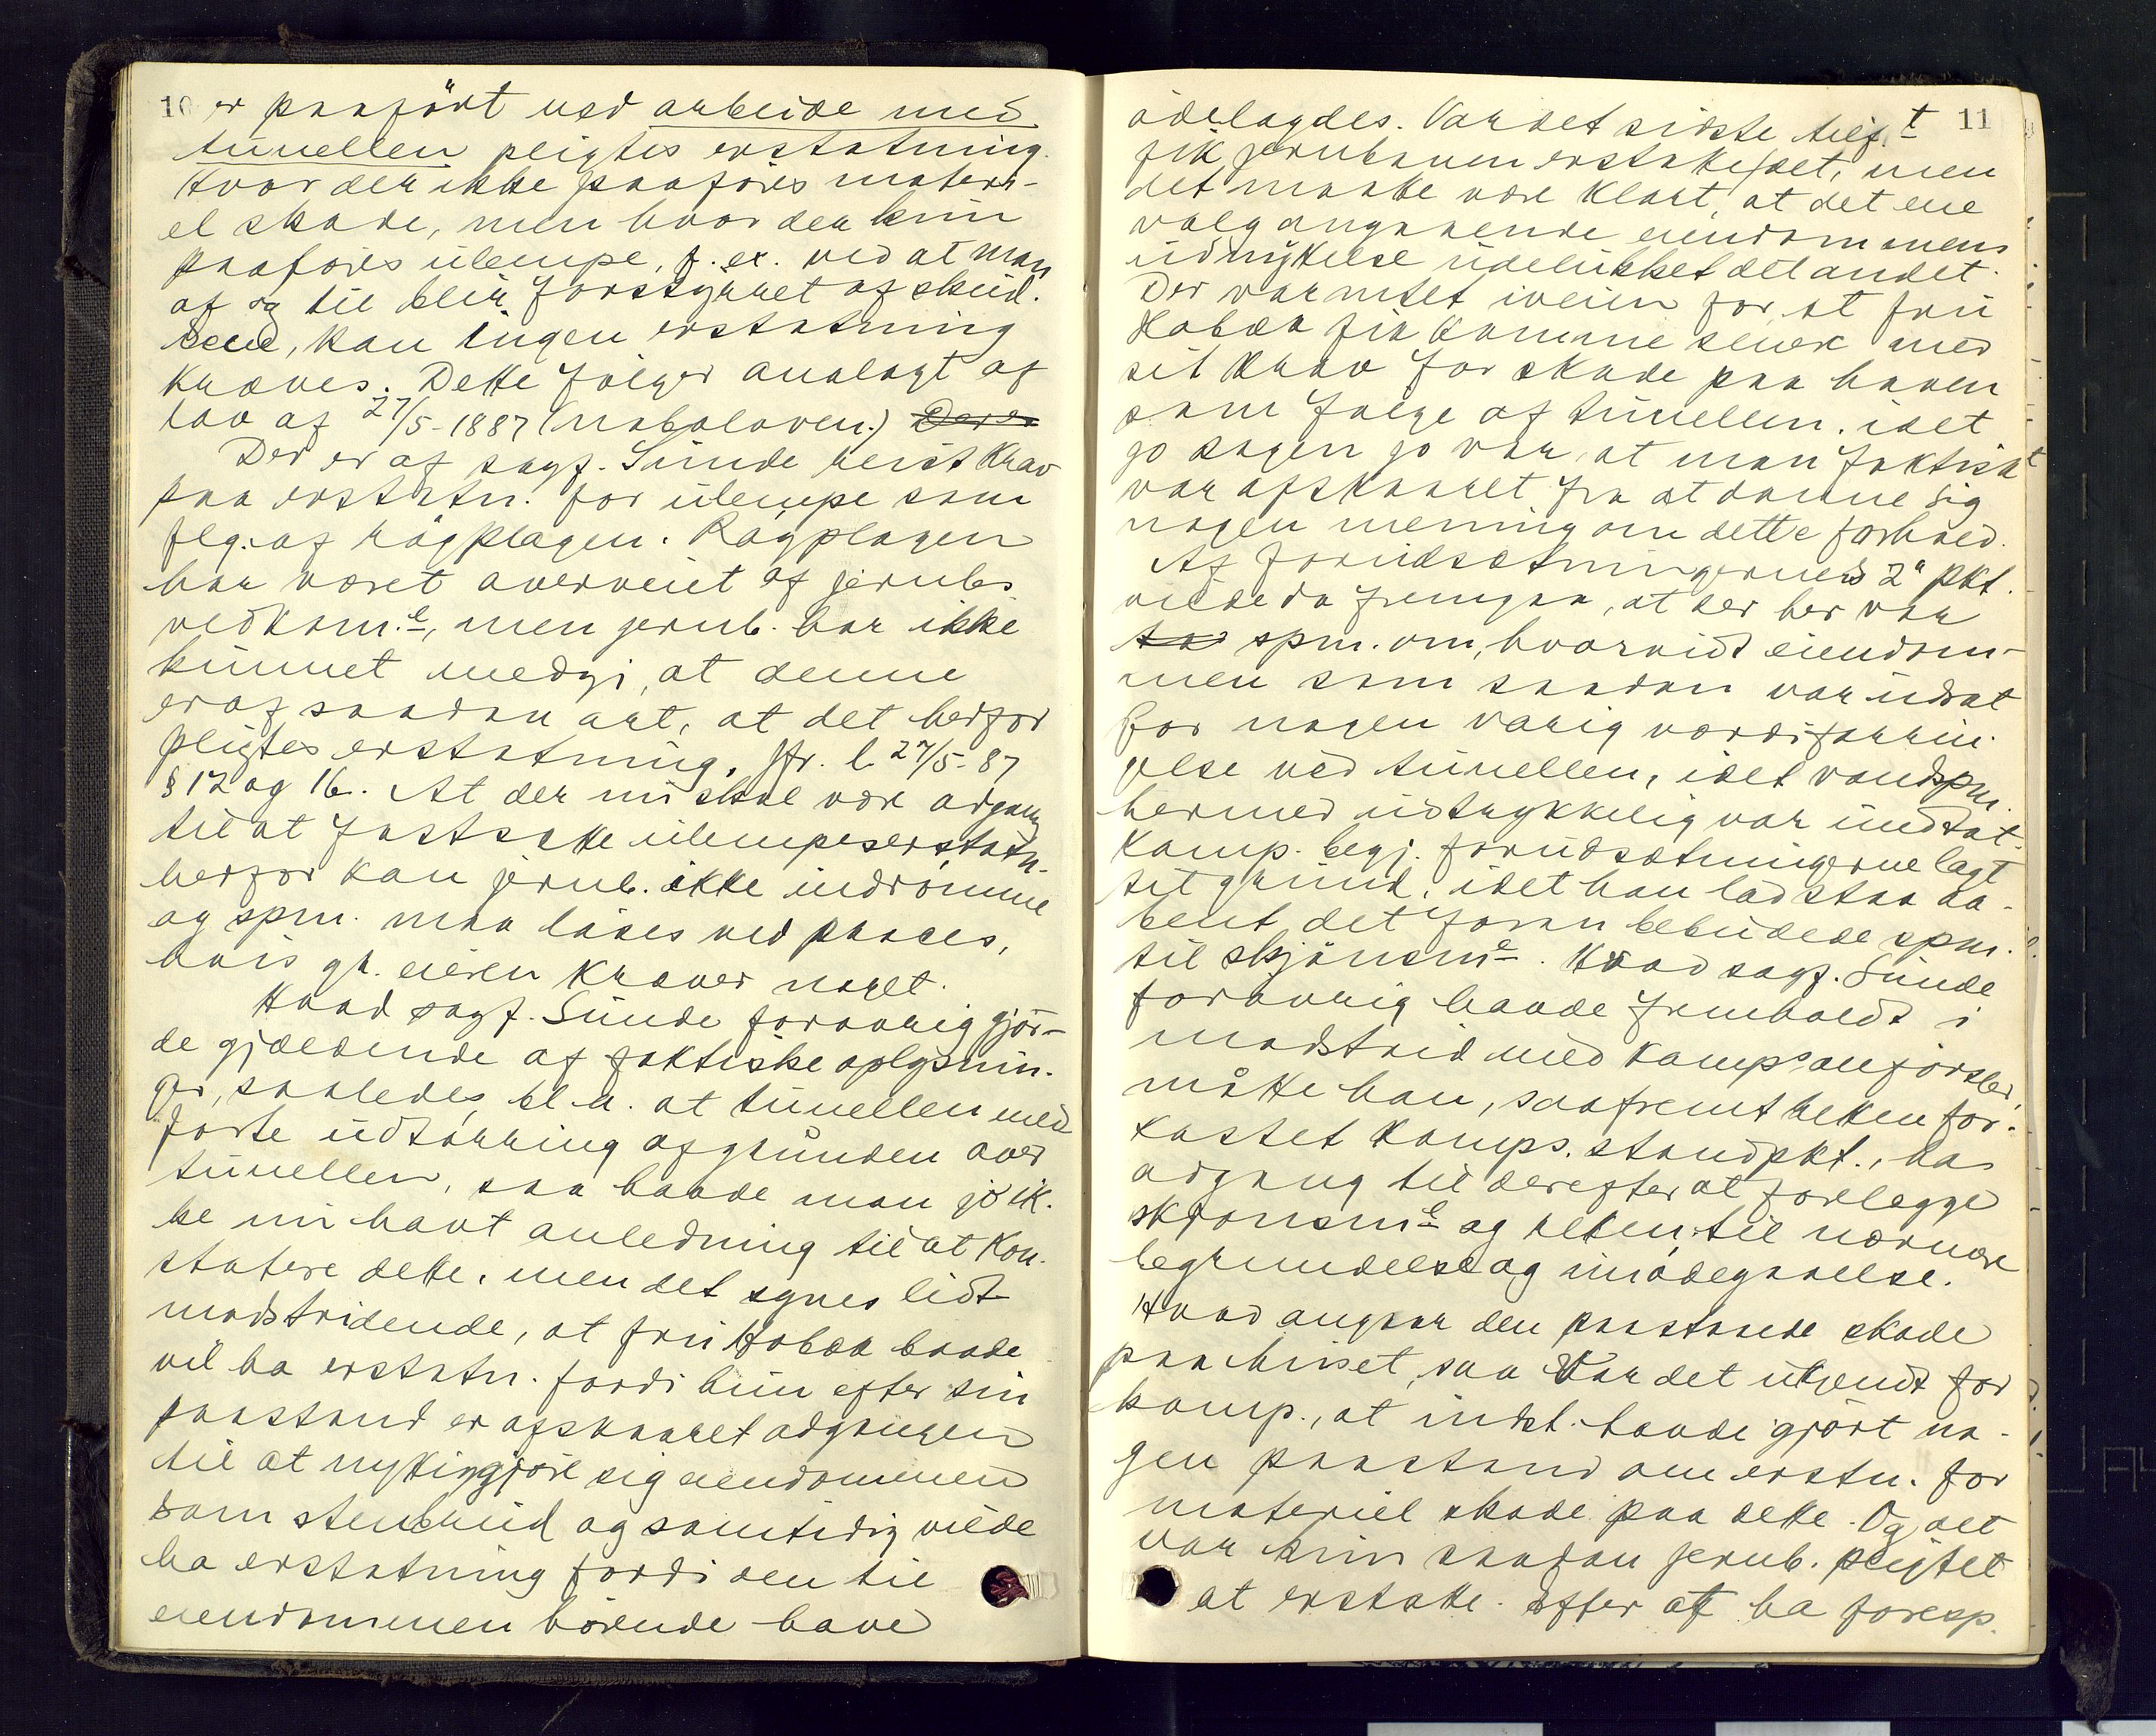 10 er paaført ved arbeide med
tunellen pligtes erstatning.
Hvor der ikke paaføres materi-
el skade, men hvor der kun
paaføres ulempe, f. ex. ved at man
af og til blir forstyrret af skud-
dene, kan ingen erstatning
kræves. Dette følger analogt af
lov af 27/5-1887 (naboloven.) Der er
Der er af sagf. Sunde reist krav
paa erstatn. for ulempe som
flg. af røgplagen. Røgplagen
har været overveiet af jernb.s
vedkom.e, men jernb. har ikke
kunnet medgi, at denne
er af saadan art, at det herfor
pligtes erstatning, jfr. l. 27/5-87
§ 12 og 16. At der nu skal være adgang
til at fastsætte ulempeserstatn.
herfor kan jernb. ikke indrømme
og spm. maa løses ved proces,
hvis gr. eieren kræver noget.
Hvad sagf. Sunde forøvrig gjør-
de gjældende af faktiske oplysnin-
ger, saaledes bl. a. at tunellen med
førte udtørring af grunden over
tunellen, saa havde man jo ik-
ke nu havt anledning til at kon-
statere dette. men det synes lidt
modstridende, at fru Hobæk baade
vil ha erstatn. fordi hun efter sin
paastand er afskaaret adgangen
til at nyttiggjøre sig eiendommen
som stenbrud og samtidig vilde
ha erstatning fordi den til
eiendommen hørende have
11
ødelagdes. Var det sidste tilf. t
fik jernbanen erstatte det, men
det maatte være klart, at det ene
valg angaaende eiendommens
udnyttelse udelukket det andet.
Der var intet iveien for, at fru
Hobæk fik komme senere med
sit krav for skade paa haven
som følge af tunellen, idet
jo sagen jo var, at man faktisk
var afskaaret fra at danne sig
nogen mening om dette forhold.
Af forudsætningernes 2' pkt.
vilde da fremgaa, at der her var
spm. om, hvorvidt eiendom-
men som saadan var udsat
for nogen varig værdiforrin-
gelse ved tunellen, idet vandspm.
hermed udtrykkelig var undtat.
Komp. begj. forudsætningerne lagt
til grund, idet han lod staa aa-
bent det foran bebudede spm.
til skjønsm.e. Hvad sagf. Sunde
forøvrig havde fremholdt i
modstrid med komps anførsler,
måtte han, saafremt retten for-
kastet komps. standpkt., ha
adgang til derefter at forelægge
skjønsm.e og retten til nærmere
begrundelse og imødegaaelse.
Hvad angaar den paastaaede skade
paa huset, saa var det ukjendt for
komp., at indst. havde gjort no-
gen paastand om erstn. for
materiel skade paa dette. Og det
var kun saadan jernb. pligtet
at erstatte. Efter at ha foresp.